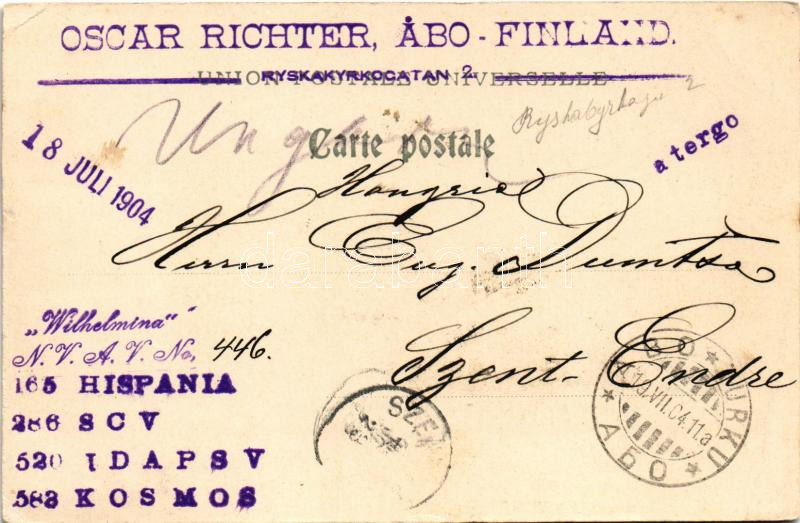 OSCAR RICHTER, ÅBO - FINLAND.
UNION POSTALE UNIVERSELLE
RYSKAKYRKOGATAN 2
Ryskakyrkogn 2
18 JULI 1904
Carte postale
a tergo
Hongrie
Herrn Eug. Dumtsa
Szent-Endre
„Wilhelmina"
N. V. A. V. No, 446.
165 HISPANIA
286 SCV
520 IDAPSV
583 KOSMOS
SZEN
ÅBO * TURKU * АБО *
19.VII.04.11a
darabanth